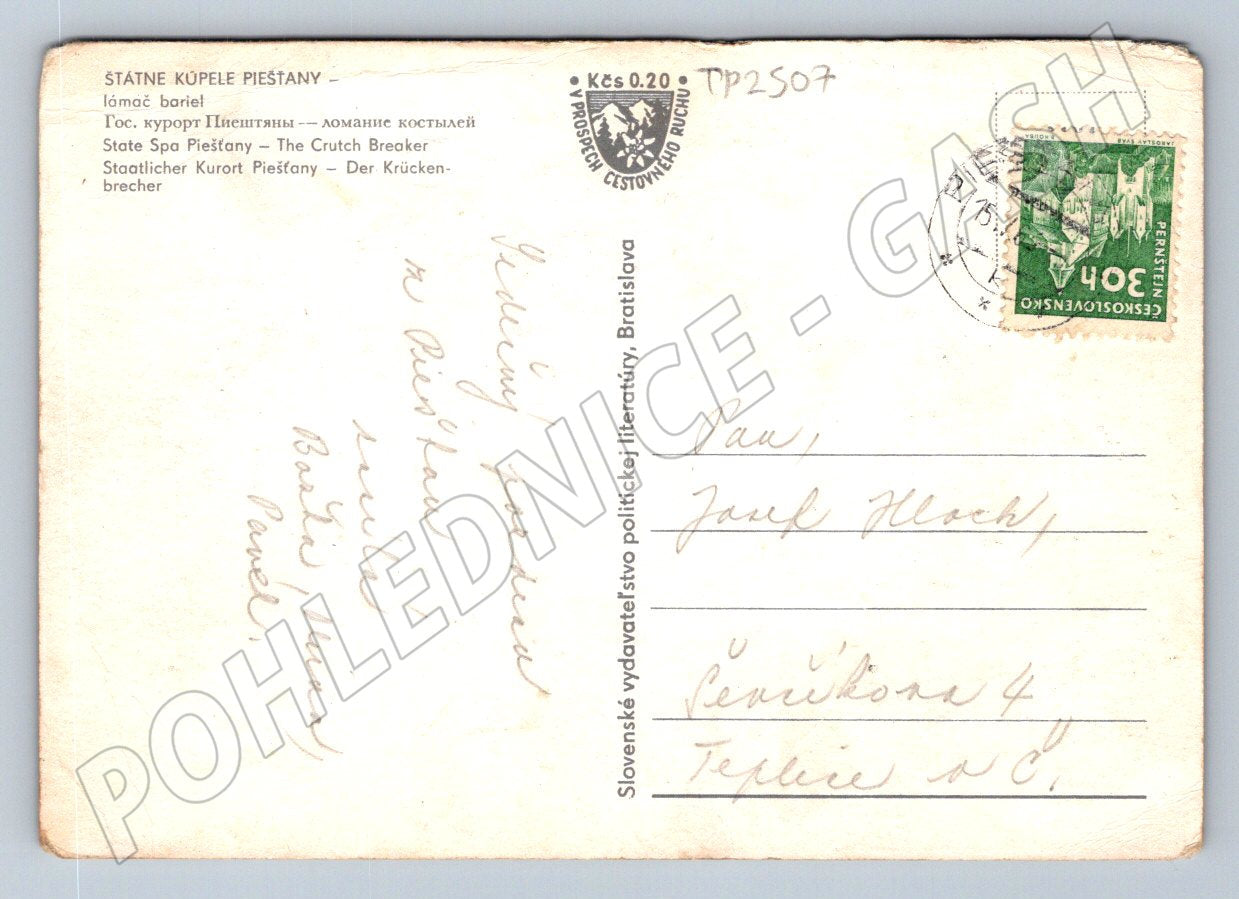 ŠTÁTNE KÚPELE PIEŠŤANY –
lámač bariel
Гос. курорт Пиештяны — ломание костылей
State Spa Piešťany – The Crutch Breaker
Staatlicher Kurort Piešťany – Der Krücken-
brecher
• Kčs 0.20 •
V PROSPECH CESTOVNÉHO RUCHU
TP2507
JAROSLAV ŠVÁB
PERNŠTEJN
30h
ČESKOSLOVENSKO
15
Srdečný pozdrav
z Piešťan
Pavel.
Slovenské vydavateľstvo politickej literatúry, Bratislava
Pan,
Josef Hloch,
Ševčíkova 4
Teplice v Č.
POHLEDNICE - GASH